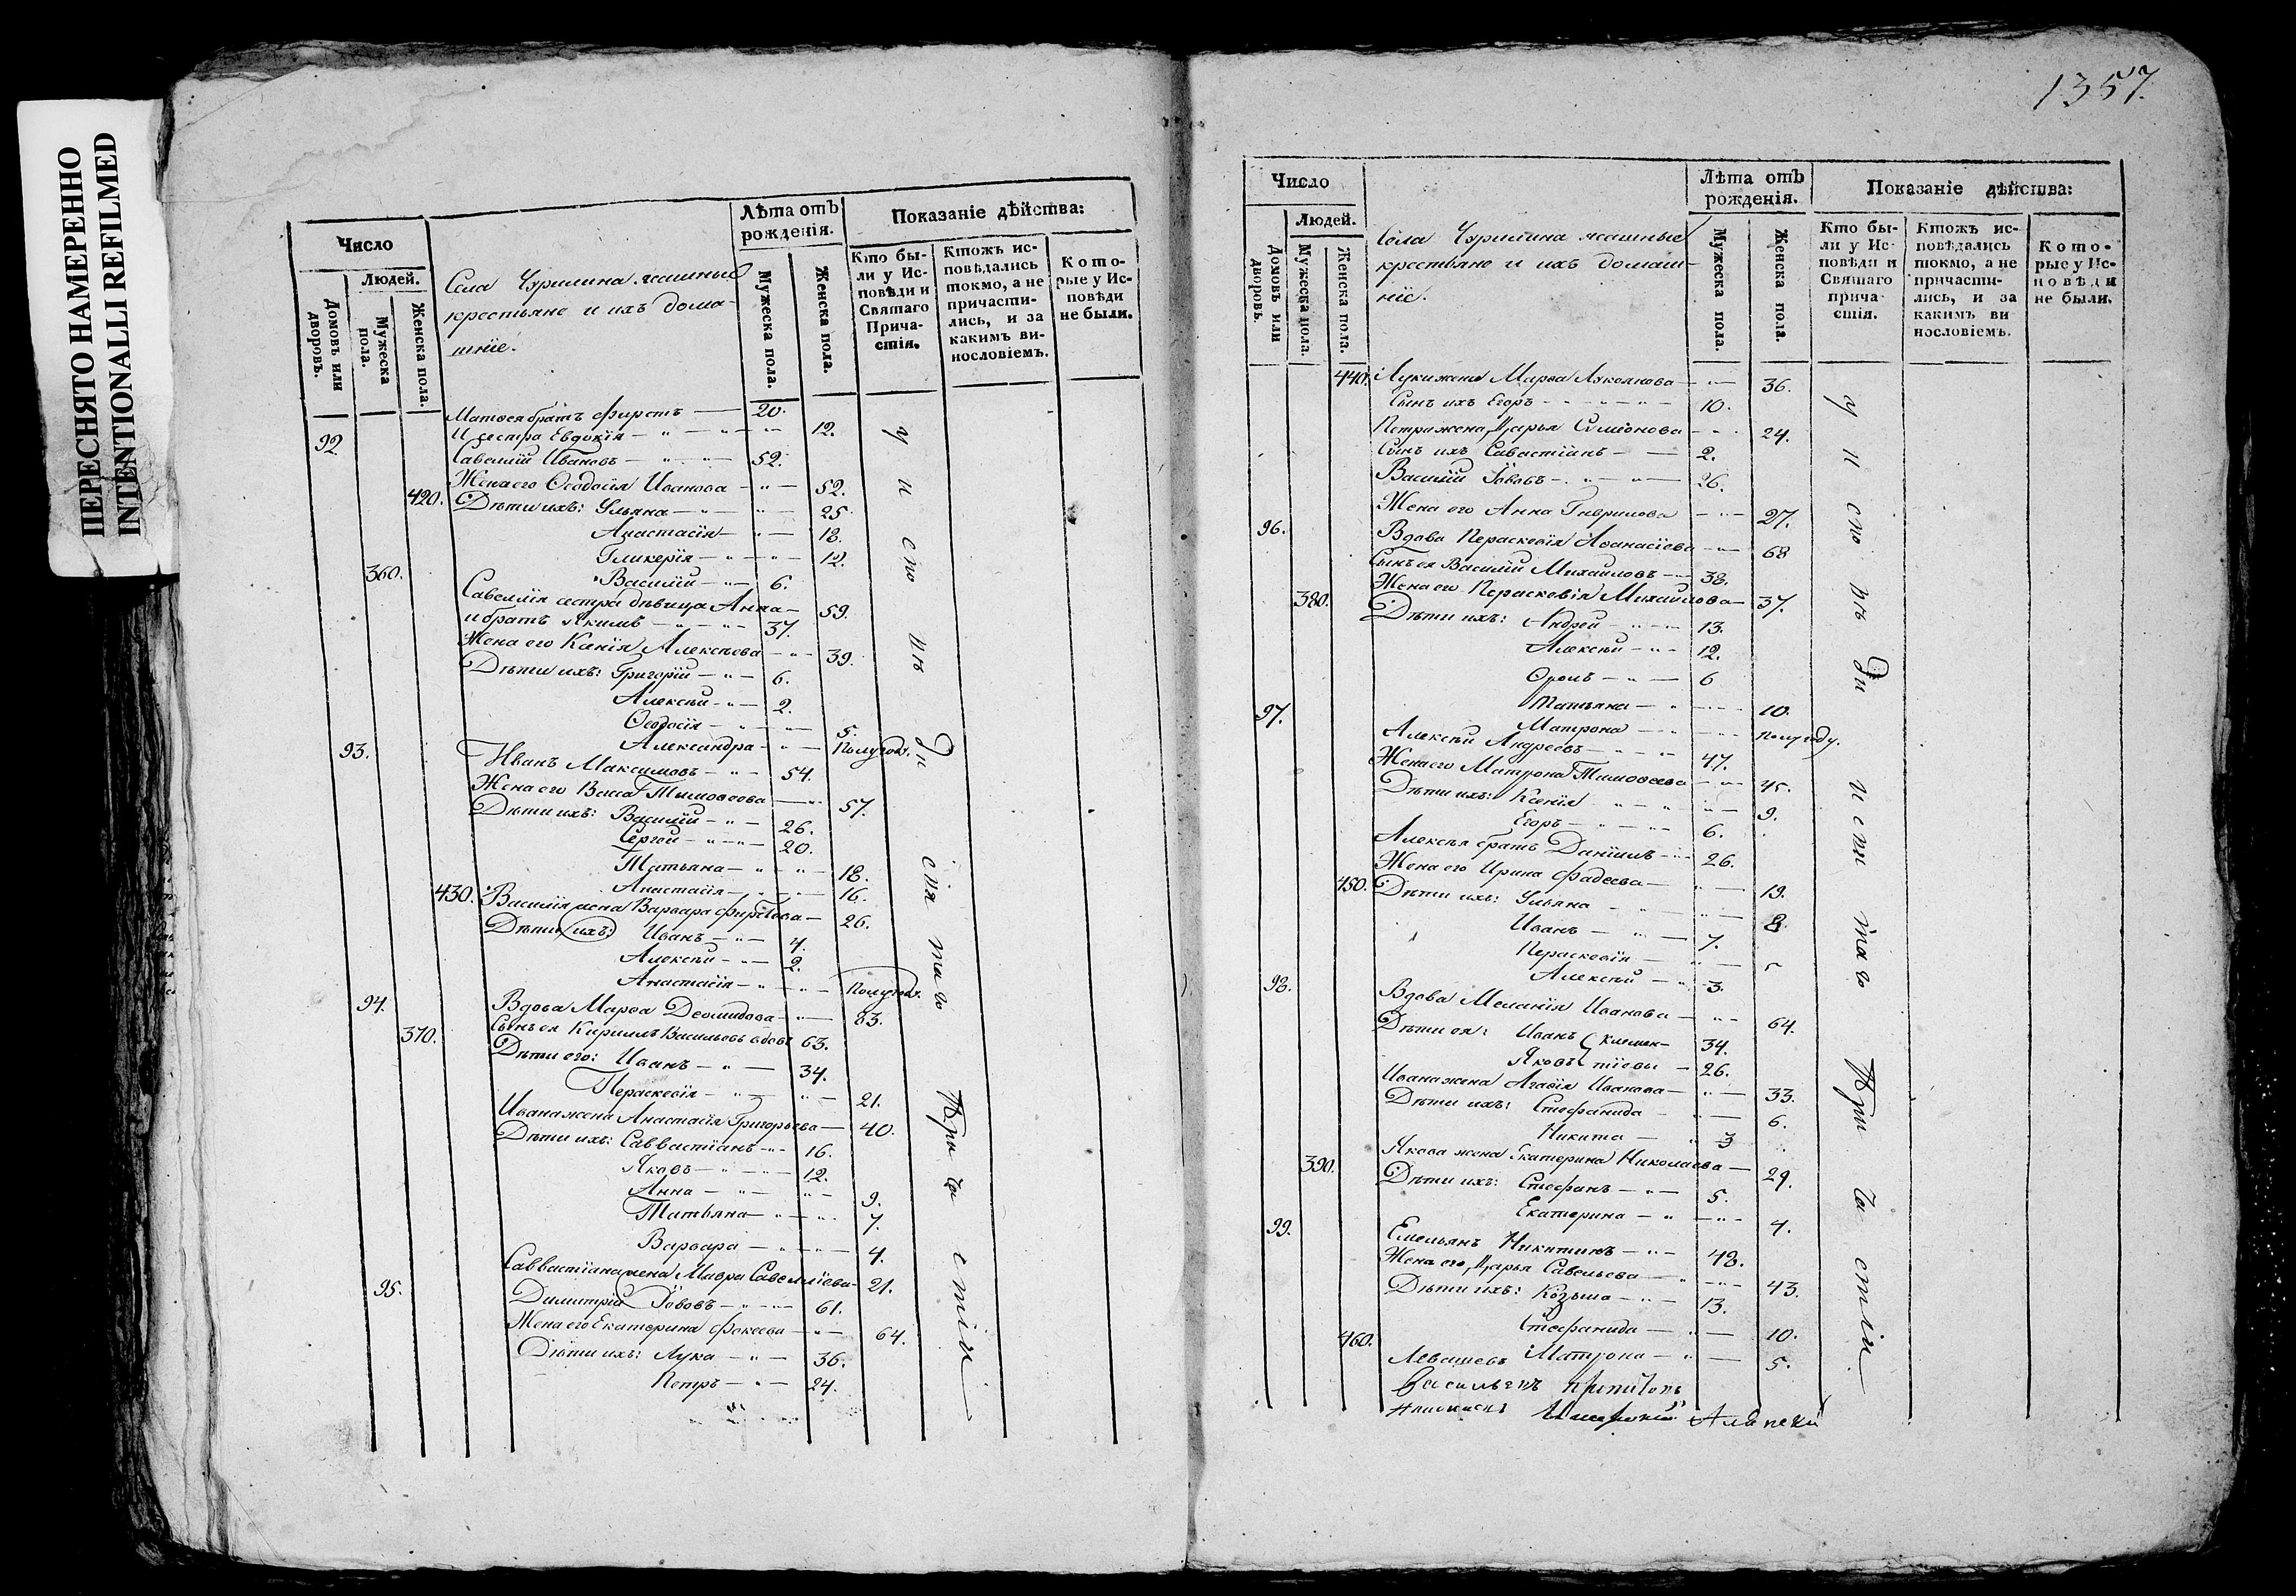 ПЕРЕСНЯТО НАМЕРЕННО
INTENTIONALLI REFILMED
Число
Людей.
Домовъ или дворовъ.
Мужеска пола.
Женска пола.
Села Чурилина ясашные
крестьяне и ихъ дома-
шніе.
Лѣта отъ рожденія.
Мужеска пола.
Женска пола.
Показаніе дѣйства:
Кто бы-
ли у Ис-
повѣди и
Святаго
Прича-
стія.
Ктожъ ис-
повѣдались
токмо, а не
причасти-
лись, и за
какимъ ви-
нословіемъ.
Кото-
рые у Ис-
повѣди
не были.
Матвея братъ Фирстъ 20.
И сестра Евдокія 12.
92. Савелій Ивановъ 52.
Жена его Ѳеодосія Иванова 52.
420. Дѣти ихъ: Ульяна 25
Анастасія 18.
Гликерія 12.
360. Василій 6.
Савелія сестра дѣвица Анна 59.
и братъ Якимъ 37.
Жена его Алексѣева 39.
Дѣти ихъ: Григорій 6.
Алексѣй 2.
Ѳеодосія 5.
Александра Полугоду.
93. Иванъ Максимовъ 54.
Жена его Васса Тимоѳеева 57.
Дѣти ихъ: Василій 26.
Сергей 20.
Татьяна 18.
Анастасія 16.
430. Василія жена Варвара Фирстова 26.
Дѣти ихъ: Иванъ 4.
Алексѣй 2.
Анастасія Полугоду.
94. Вдова Марѳа Деомидова 83.
370. Сынъ ея Кирилъ Васильевъ вдовъ 63.
Дѣти его: Иванъ 34.
Пераскевія 21.
Ивана жена Анастасія Григорьева 40.
Дѣти ихъ: Саввастіанъ 16.
Яковъ 12.
Анна 9.
Татьяна 7.
Варвара 4.
Саввастіана жена Мавра Савелліева 21.
95. Димитрій Іововъ 61.
Жена его Екатерина Фокеева 64.
Дѣти ихъ: Лука 36.
Петръ 24.
у исповѣди и святаго причастія
1357.
Число
Людей.
Домовъ или дворовъ.
Мужеска пола.
Женска пола.
Села Чурилина ясашные
крестьяне и ихъ домаш-
ніе.
Лѣта отъ рожденія.
Мужеска пола.
Женска пола.
Показаніе дѣйства:
Кто бы-
ли у Ис-
повѣди и
Святаго
прича-
стія.
Ктожъ ис-
повѣдались
токмо, а не
причасти-
лись, и за
какимъ ви
нословіемъ.
Кото-
рые у Ис-
повѣди
не были.
440. Луки жена Марѳа Лукоянова 36.
Сынъ ихъ Егоръ 10.
Петра жена Дарья Симіонова 24.
Сынъ ихъ Савастіанъ 2.
Василій Іововъ 26.
Жена его Анна Гаврилова 27.
96. Вдова Пераскевія Аѳанасіева 68
Сынъ ея Василій Михайловъ 38.
Жена его Пераскевія Михайлова 37.
380. Дѣти ихъ: Андрей 13.
Алексѣй 12.
6
Татьяна 10.
Матрона полугоду.
97. Алексѣй Андреевъ 47.
Жена его Матрона Тимоѳеева 45.
Дѣти ихъ: Ксенія 9.
Егоръ 6.
Алексѣя братъ Даніилъ 26.
Жена его Ирина Фадеева 19.
450. Дѣти ихъ: Ульяна 8.
Иванъ 7.
Пераскевія 5
Алексѣй 3.
98. Вдова Меланія Иванова 64.
Дѣти ея: Иванъ Климен- 34.
Яковъ тіевы 26.
Ивана жена Агаѳія Иванова 33.
Дѣти ихъ: Стефанида 6.
Никита 3
Якова жена Екатерина Николаева 29.
390. Дѣти ихъ: Стефанъ 5.
Екатерина 4.
99. Емельянъ Никитинъ 48.
Жена его Дарья Савельева 43.
Дѣти ихъ: Козьма 13.
Стефанида 10.
460. Матрона 5.
у исповѣди и святаго причастія